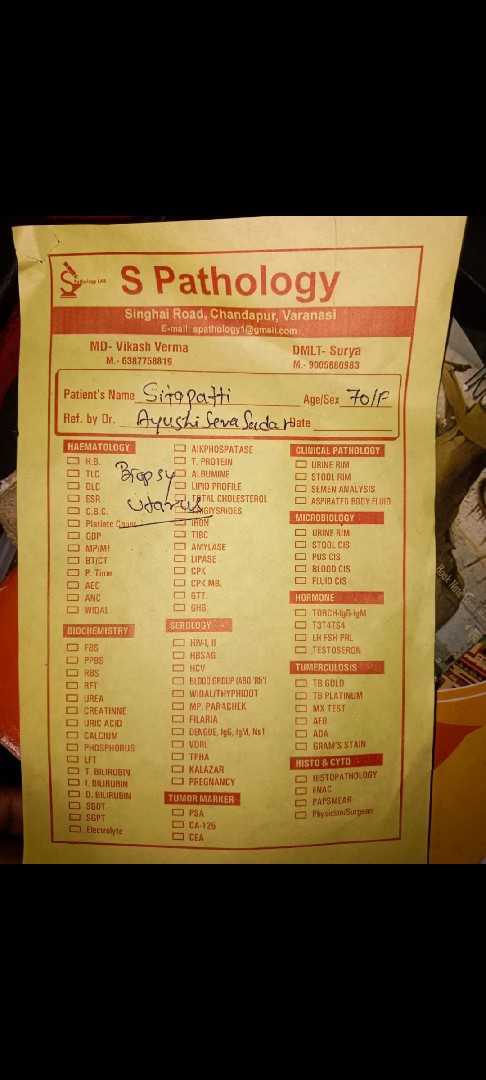 S Pathology LAB
S Pathology
Singhai Road, Chandapur, Varanasi
E-mail: spathology1@gmail.com
MD- Vikash Verma
M.- 6387758819
DMLT- Surya
M.- 9005880983
Patient's Name Sitapatti Age/Sex 70/F
Ref. by Dr. Ayushi Seva Sadan Date
Biopsy
Utarus
HAEMATOLOGY
H.B.
TLC
DLC
ESR
C.B.C.
Platlete Count
GBP
MP/MF
BT/CT
P. Time
AEC
ANC
WIDAL
BIOCHEMISTRY
FBS
PPBS
RBS
RFT
UREA
CREATINNE
URIC ACID
CALCIUM
PHOSPHORUS
LFT
T. BILIRUBIN
I. BILIRUBIN
D. BILIRUBIN
SGOT
SGPT
Electrolyte
AIKPHOSPATASE
T. PROTEIN
ALBUMINE
LIPID PROFILE
TOTAL CHOLESTEROL
IRON
TIBC
AMYLASE
LIPASE
CPK
CPK MB.
GTT.
GHB.
SEROLOGY
HIV-I, II
HBSAG
HCV
BLOOD GROUP (ABO 'Rh')
WIDAL/THYPHIDOT
MP. PARACHEK
FILARIA
DENGUE, IgG, IgM, Ns1
VDRL
TPHA
KALAZAR
PREGNANCY
TUMOR MARKER
PSA
CA-125
CEA
CLINICAL PATHOLOGY
URINE R/M
STOOL R/M
SEMEN ANALYSIS
ASPIRATED BODY FLUID
MICROBIOLOGY
URINE R/M
STOOL C/S
PUS C/S
BLOOD C/S
FLUID C/S
HORMONE
TORCH-IgG-IgM
T3T4TS4
LH FSH PRL
TESTOSERON
TUMERCULOSIS
TB GOLD
TB PLATINUM
MX TEST
AFB
ADA
GRAM'S STAIN
HISTO & CYTO
HISTOPATHOLOGY
FNAC
PAPSMEAR
Physician/Surgeon